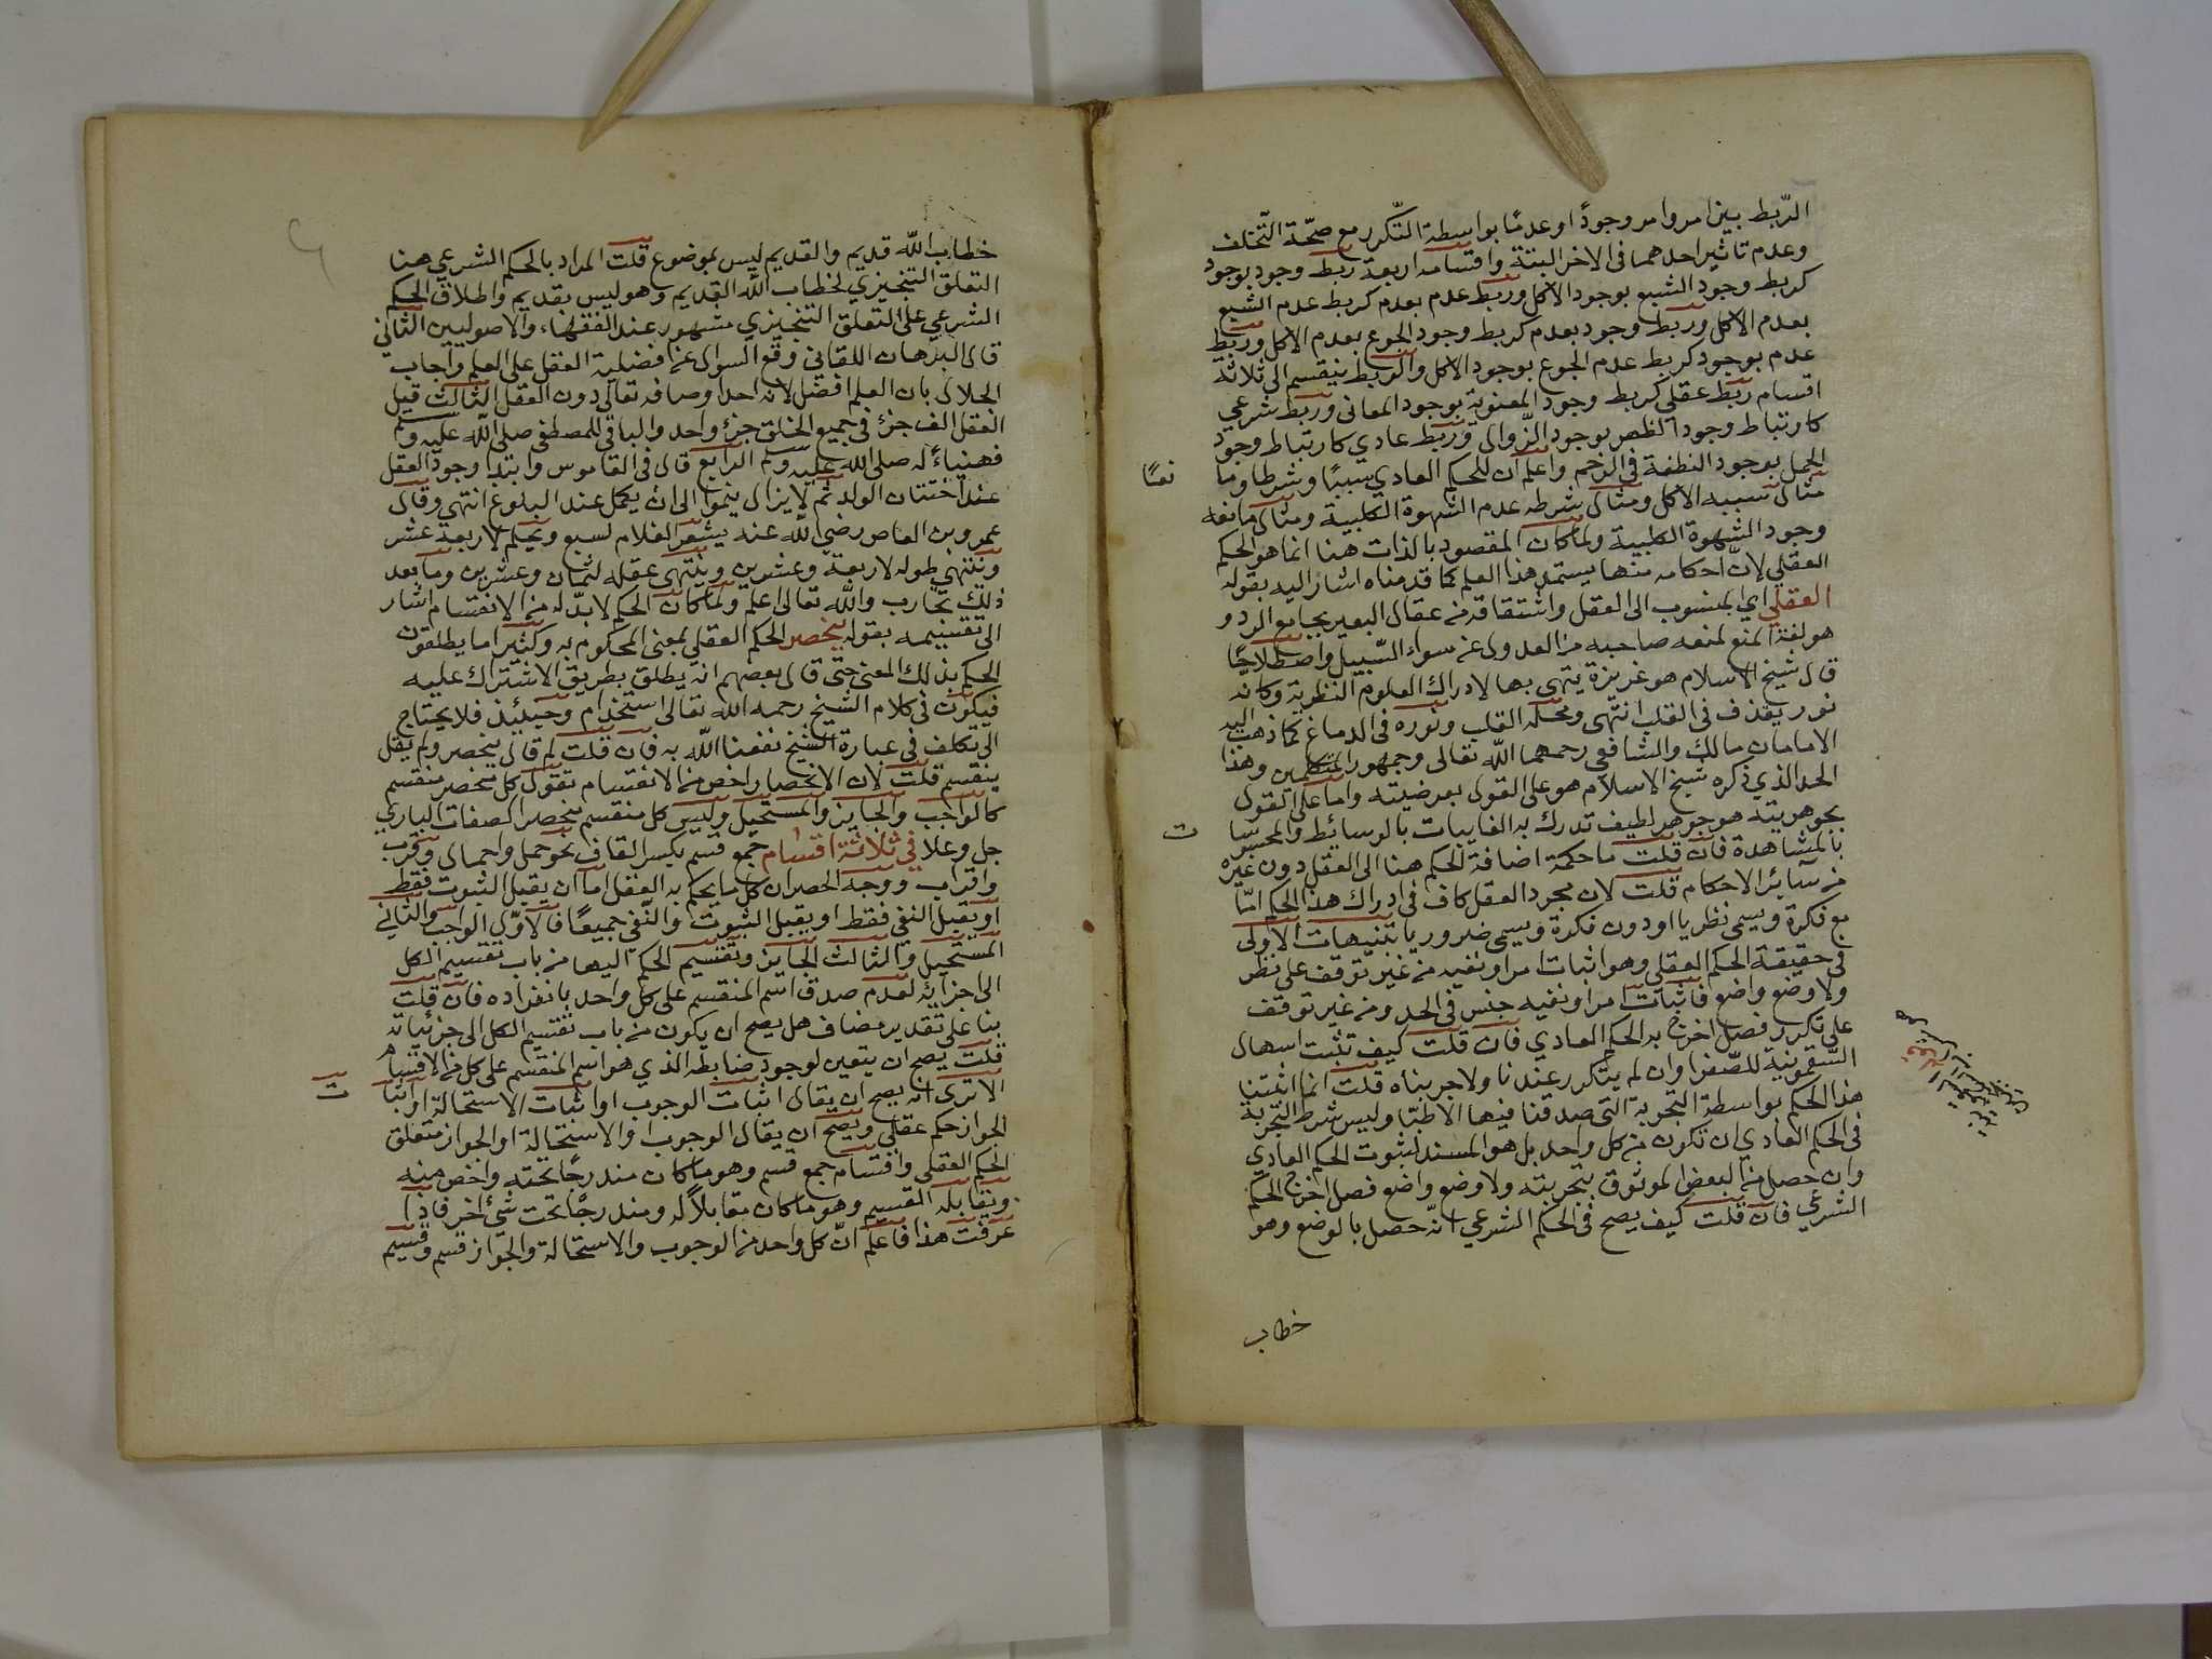 الرّبط بين امر وامر وجودًا او عدمًا بواسطة التّكرر مع صحّة التّخلف
وعدم تاثير احدهما فى الاخر البتة واقسامه اربعة ربط وجود بوجود
كربط وجود الشبع بوجود الاكل وربط عدم بعدم كربط عدم الشبع
بعدم الاكل وربط وجود بعدم كربط وجود الجوع بعدم الاكل وربط
عدم بوجود كربط عدم الجوع بوجود الاكل والربط ينقسم الى ثلاثة
اقسام ربط عقلى كربط وجود المعنوية بوجود المعانى وربط شرعي
كارتباط وجود الظهر بوجود الزّوال وربط عادي كارتباط وجود
الحمل بوجود النطفة فى الرحم واعلم ان للحكم العادي سببًا وشرطا وما
نعًا
مثال سببه الاكل ومثال شرطه عدم الشهوة الكلبية ومثال مانعه
وجود الشهوة الكلبية ولما كان المقصود بالذات هنا انما هو الحكم
العقلي لانّ احكامه منها يستمد هذا العلم كما قدمناه اشار اليه بقوله
العقلي اي المنسوب الى العقل واشتقاقه من عقال البعير بجامع الرد و
هو لغة المنع لمنعه صاحبه من العدول عن سواء السّبيل واصطلاحًا
قال شيخ الاسلام هو غريزة يتهى بها لادراك العلوم النظرية وكانه
نور يقذف فى القلب انتهى ومحله القلب ونوره فى الدماغ كما ذهب اليه
الامامان مالك والشافعي رحمهما الله تعالى وجمهور المتكلمين وهذا
الحد الذي ذكره شيخ الاسلام هو على القول بعرضيته واما على القول
بجوهريته هو جوهر لطيف تدرك به الغايبات بالوسائط والمحسوسا
ت
بالمشاهدة فان قلت ما حكمة اضافة الحكم هنا الى العقل دون غيره
من سائر الاحكام قلت لان مجرد العقل كاف فى ادراك هذا الحكم امّا
مع فكرة ويسمى نظريا او دون فكرة ويسمى ضروريا تنبيهات الاولى
فى حقيقة الحكم العقلي وهو اثبات امر او نفيه من غير توقف على نظر
ولا وضع واضع فاثبات امر او نفيه جنس فى الحد ومن غير توقف
على تكرر فصل اخرج به الحكم العادي فان قلت كيف تثبت اسهال
السّقمونية للصّفرا وان لم يتكرر عندنا ولا جربناه قلت انما اثبتنا
هذا الحكم بواسطة التجربة التى صدقنا فيها الاطبّا وليس شرط التّجربة
فى الحكم العادي ان تكون من كل واحد بل هو المستند لثبوت الحكم العادي
وان حصل من البعض الموثوق بتجربته ولا وضع واضع فصل اخرج الحكم
الشرعي فان قلت كيف يصح فى الحكم الشرعي انّه حصل بالوضع وهو
خطاب
خطاب الله قديم والقديم ليس بموضوع قلت المراد بالحكم الشرعي هنا
التعلق التنجيزي لخطاب الله القديم وهو ليس بقديم واطلاق الحكم
الشرعي على التعلق التنجيزي مشهور عند الفقهاء والاصوليين الثاني
قال البرهان اللقاني وقع السوال عن افضلية العقل على العلم واجاب
الجلال بان العلم افضل لانه احد اوصافه تعالى دون العقل الثالث قيل
العقل الف جزئ فى جميع الخلق جزئ واحد والباقى للمصطفى صلى الله عليه وسلم
فهنياءً له صلى الله عليه وسلم الرابع قال فى القاموس وابتدا وجود العقل
عند اختتان الولد ثم لا يزال ينموا الى ان يكمل عند البلوغ انتهى وقال
عمرو بن العاص رضي الله عنه يثغر الغلام لسبع ويحلم لاربعة عشر
وينتهي طوله لاربعة وعشرين وينتهى عقله لثمان وعشرين وما بعد
ذلك تجارب والله تعالى اعلم ولما كان الحكم لابدّ له من الانقسام اشار
الى تقسيمه بقوله ينحصر الحكم العقلي بمعنى المحكوم به وكثيرا ما يطلقون
الحكم بذلك المعنى حتى قال بعضهم انه يطلق بطريق الاشتراك عليه
فيكون فى كلام الشيخ رحمه الله تعالى استخدام وحينئذ فلا يحتاج
الى تكلف فى عبارة الشيخ نفعنا الله به فان قلت لم قال ينحصر ولم يقل
ينقسم قلت لان الانحصار اخص من الانقسام تقول كل منحصر منقسم
كالواجب والجايز والمستحيل وليس كل منقسم منحصرا كصفات الباري
جل وعلا فى ثلاثة اقسام جمع قسم بكسر القاف نحو حمل واحمال وقرب
واقراب ووجه الحصر ان كل ما يحكم به العقل اما ان يقبل الثبوت فقط
او يقبل النفي فقط او يقبل الثبوت والنّفي جميعًا فالاوّل الواجب والثاني
المستحيل والثالث الجايز وتقسيم الحكم اليها من باب تقسيم الكل
الى اجزايه لعدم صدق اسم المنقسم على كل واحد بانفراده فان قلت
بنا على تقدير مضاف هل يصح ان يكون من باب تقسيم الكل الى جزئياته
قلت يصح ان يتعين لوجود ضابطه الذي هو اسم المنقسم على كل من الاقسام
الا ترى انه يصح ان يقال اثبات الوجوب او اثبات الاستحالة او اثبا
ت
الجواز حكم عقلي ويصح ان يقال الوجوب او الاستحالة او الجواز متعلق
الحكم العقلى واقسام جمع قسم وهو ما كان مندرجًا تحته واخص منه
ويقابله القسيم وهو ما كان مقابلاً له ومندرجًا تحت شئ اخر فاذا
عرفت هذا فاعلم انّ كل واحد من الوجوب والاستحالة والجواز قسم وقسيم